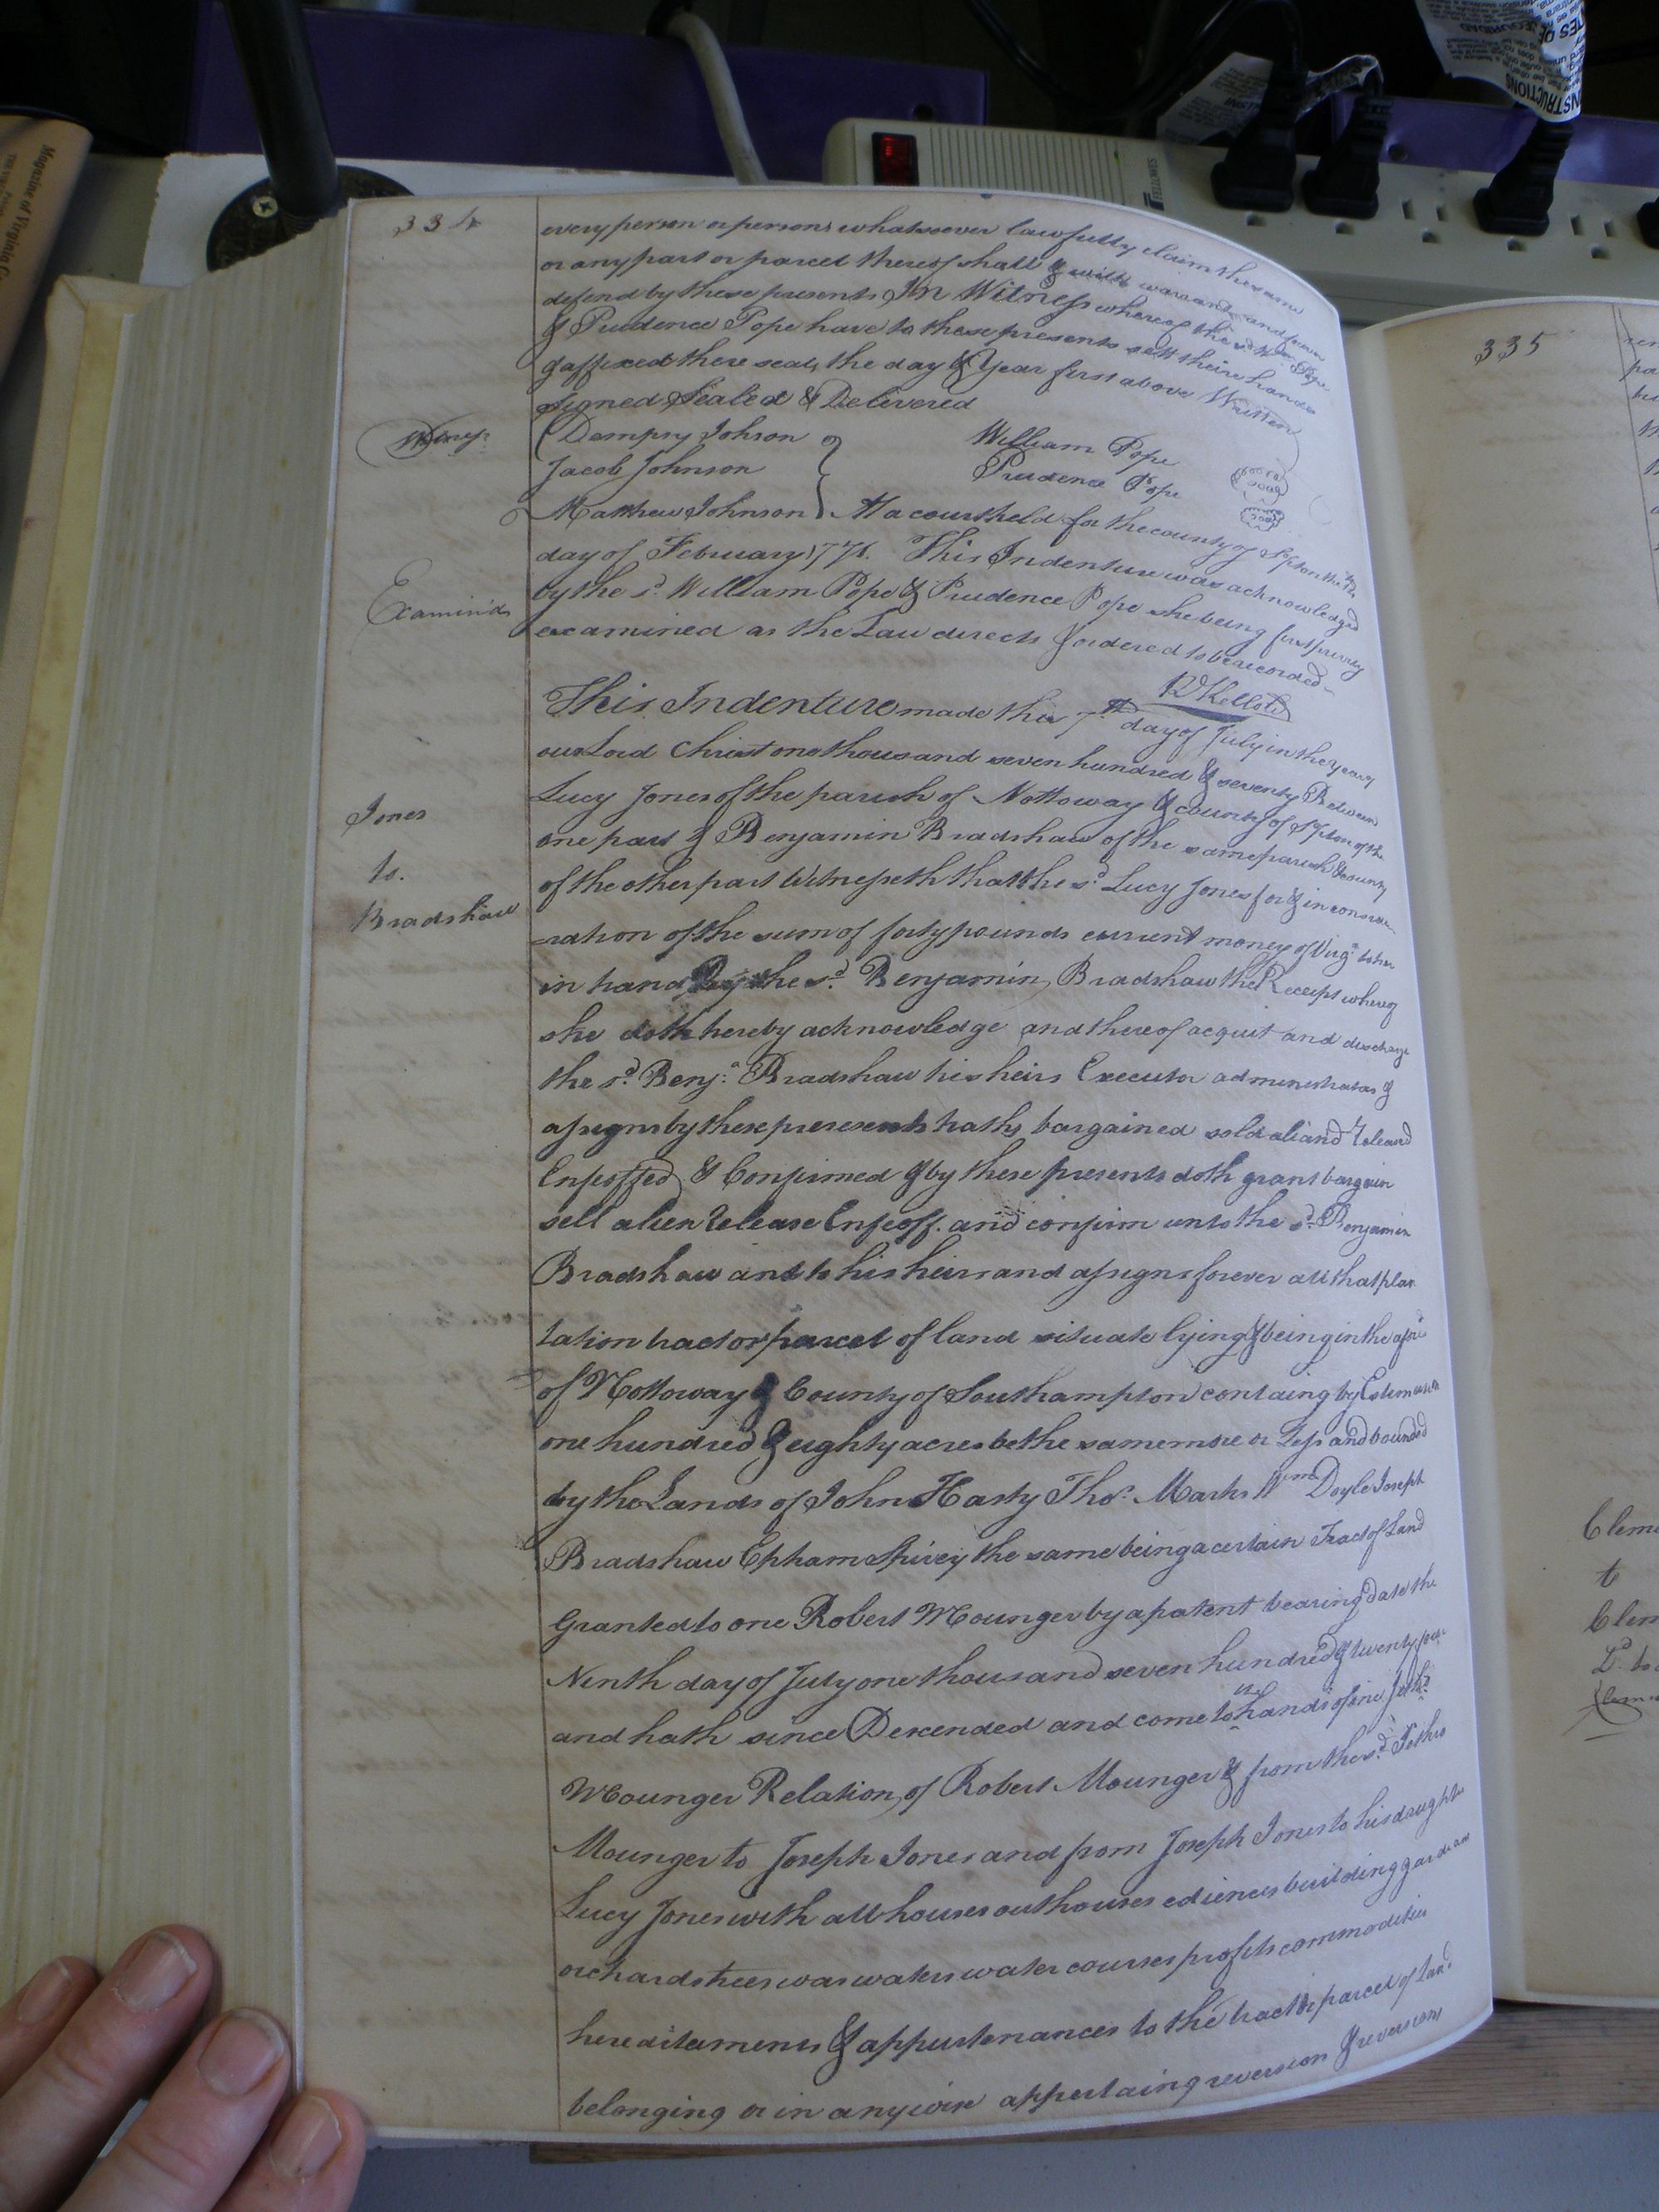 334
every person or persons whatsoever lawfully claim the same
or any part or parcel thereof shall & will warrant and forever
defend by these presents In Witness whereof the sd. Wm. Pope
& Prudence Pope have to these presents sett their hands
& affixed there seals the day & Year first above Written
Signed Sealed & Delivered
Dempsy Johson
William Pope
Jacob Johnson
Prudence Pope
Matthew Johnson
At a court held for the county of Sohpton the
day of February 1771. This Indenture was acknowledged
Examin'd
by the sd. William Pope & Prudence Pope she being first privey
examined as the Law directs & ordered to be recorded
RKello
This Indenture made this 7th day of July in the year
our Lord Christ one thousand seven hundred & seventy Between
Jones
to.
Bradshaw
Lucy Jones of the parish of Nottoway & county of Sopton of the
one part & Benjamin Bradshaw of the same parish & county
of the other part Witnesseth that the sd. Lucy Jones for & in conside
ration of the sum of forty pounds current money of Virga. to her
in hand by the sd. Benjamin Bradshaw the Receipt whereof
she doth hereby acknowledge and thereof acquit and discharge
the sd. Benja. Bradshaw his heirs Executor administrators &
assigns by these presents hath bargained sold aliand releasd
Enfoffed & Confirmed & by these presents doth grant bargain
sell alien release Enfeoff. and confirm unto the sd. Benjamin
Bradshaw and to his heirs and assigns forever all that plan
tation tract or parcel of land situate lying & being in the afors
of Nottoway & County of Southampton containg by Estimation
one hundred & eighty acres be the same more or Less and bounded
by the Lands of John Hasty Thos. Marks Wm Doyle Joseph
Bradshaw Epham Spivey the same being a certain Tract of Land
Granted to one Robert Mounger by a patent bearing date the
Ninth day of July one thousand seven hundred & twenty
and hath since Descended and come to the hands of one
Mounger Relation of Robert Mounger & from the sd.
Mounger to Joseph Jones and from Joseph Jones to his daughter
Lucy Jones with all houses outhouses ediences building gardean
orchards trees was waters water courses profits commodities
hereditaments & appurtenances to the tract or parcel of Land
belonging or in anywise appertaing reversion & reversions
335
Magazine of Virginia
INSTRUCTIONS